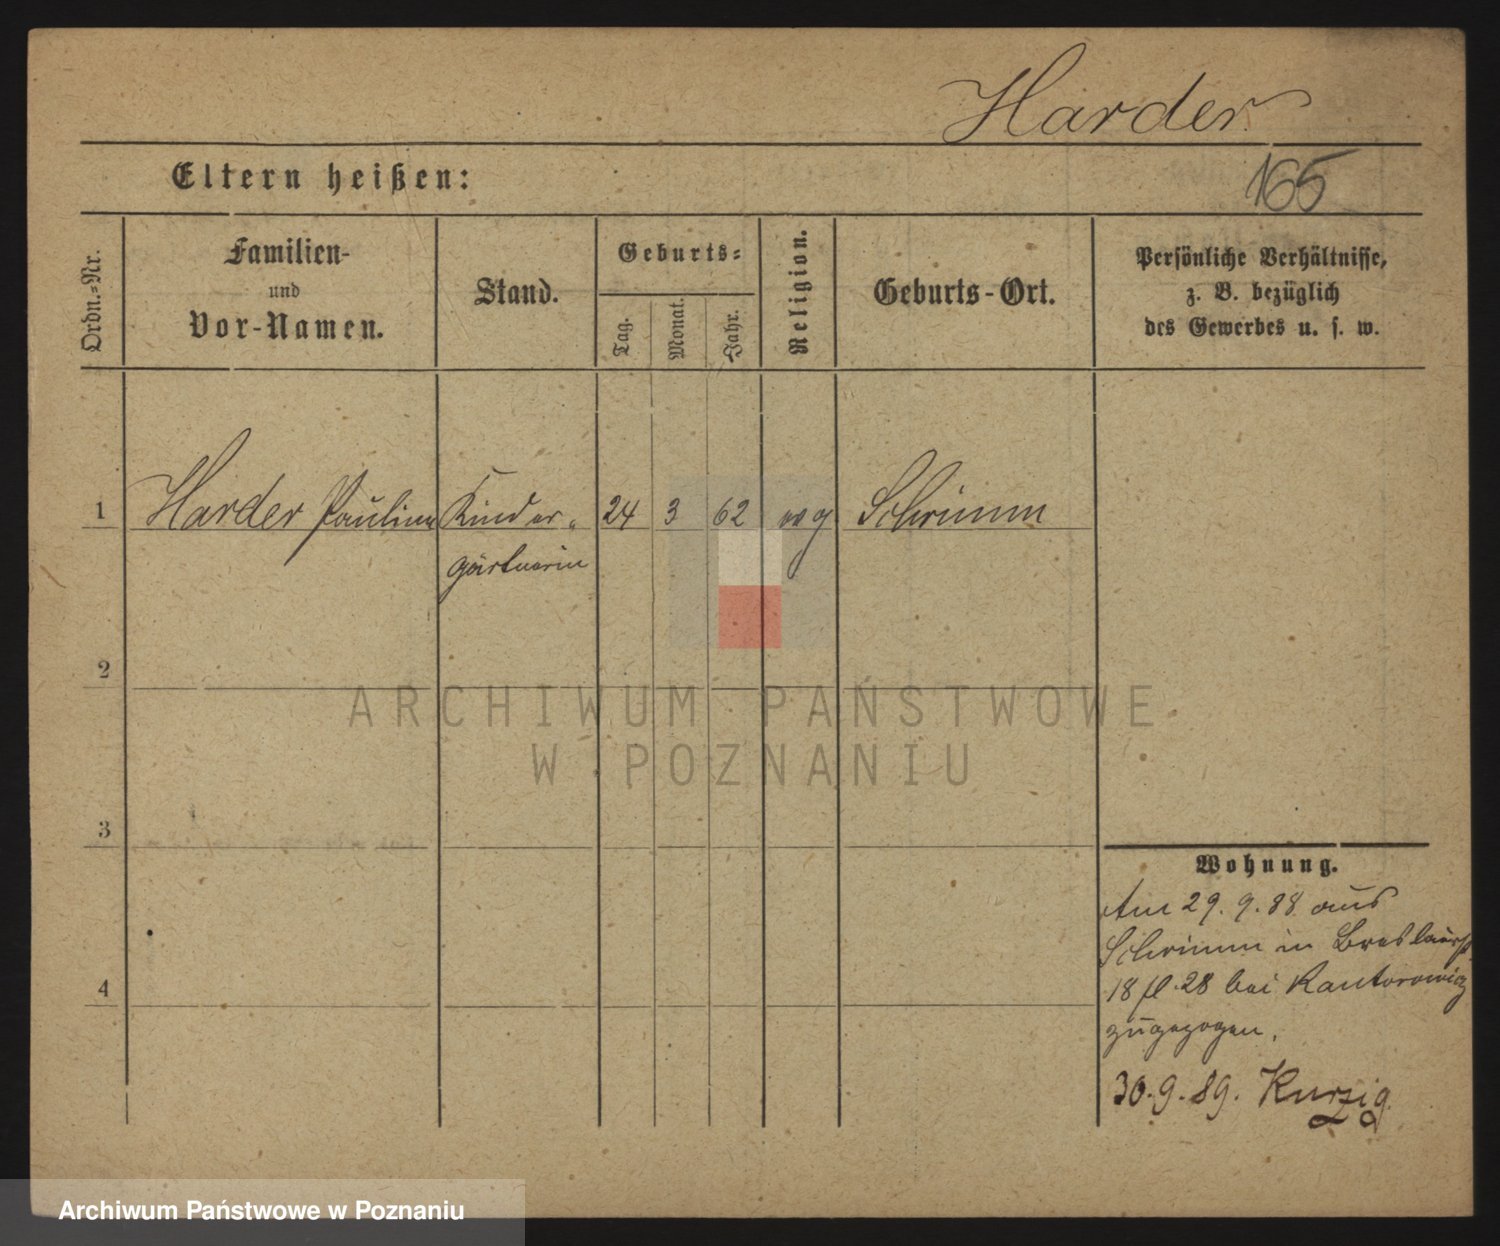 Harder
Eltern heißen:
165
Ordn.-Nr.
Familien-
und
Vor-Namen.
Stand.
Geburts-
Tag.
Monat.
Jahr.
Religion.
Geburts-Ort.
Persönliche Verhältnisse,
z. B. bezüglich
des Gewerbes u. s. w.
1 Harder Pauline Kinder- 24 3 62 evg Schrimm
gärtnerin
2
ARCHIWUM PAŃSTWOWE
W POZNANIU
3
Wohnung.
Am 29. 9. 88 aus
Schrimm in Breslauerst
4
18 fl. 28 bei Kantorowicz
zugezogen.
30. 9. 89. Kurzig
Archiwum Państwowe w Poznaniu